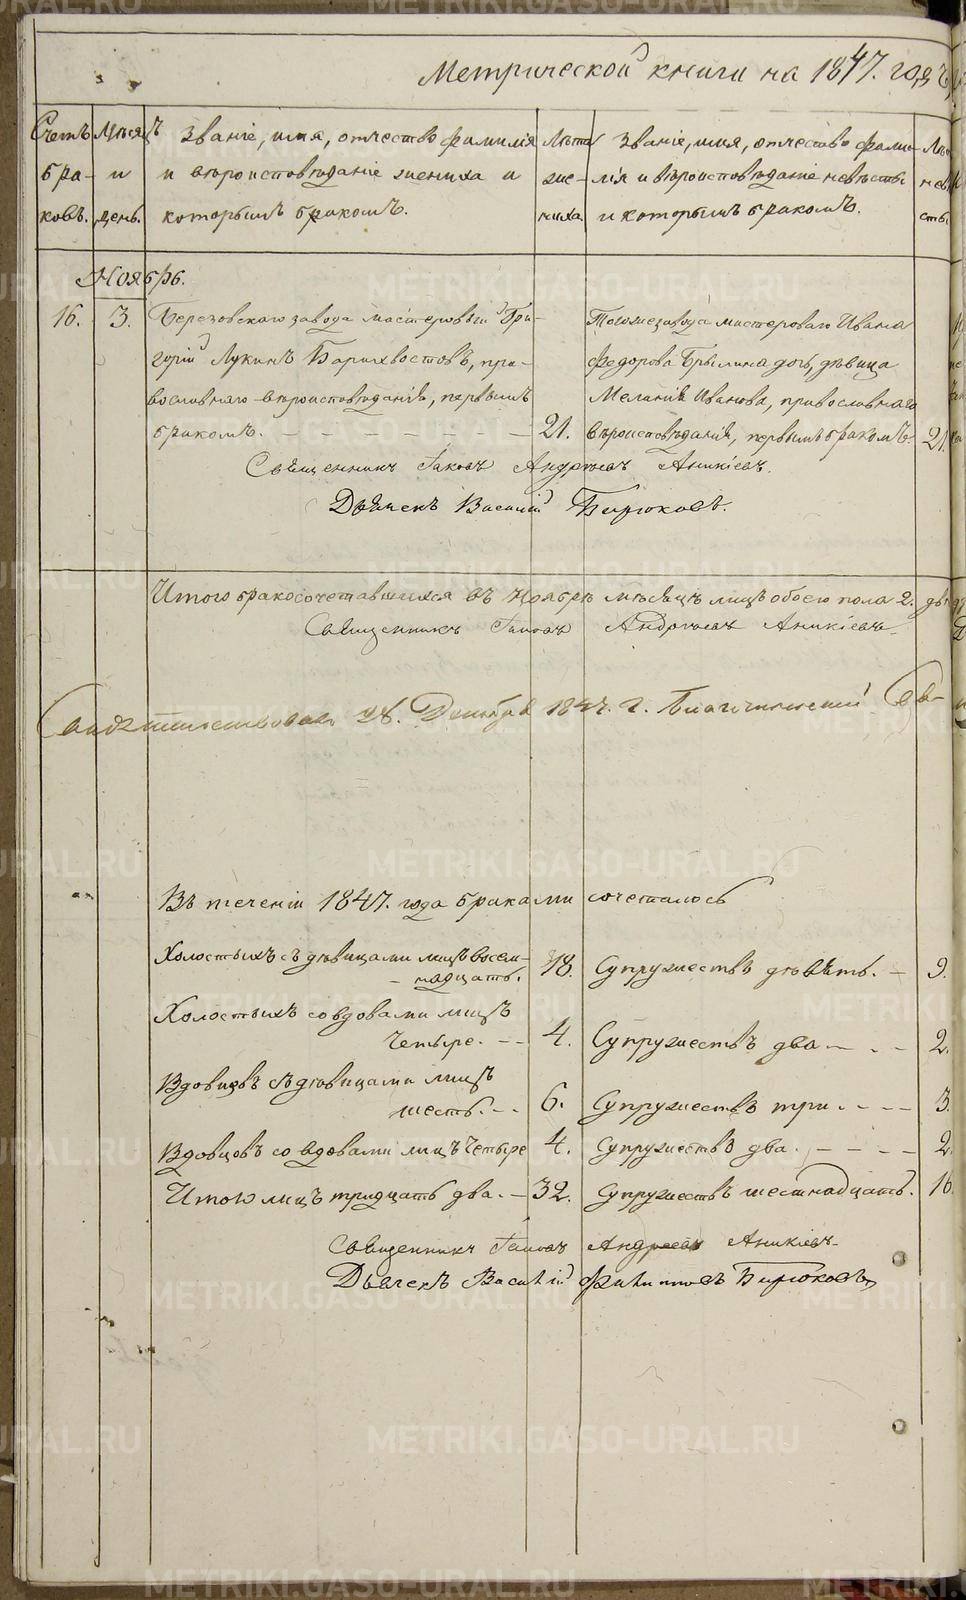 Метрической книги на 1847. годъ,
Счетъ бра- ковъ.
Мѣсяцъ и день.
Званіе, имя, отчество фамилія
и вѣроисповѣданіе жениха и
которымъ бракомъ.
Лѣта же- ниха
Званіе, имя, отчество фами-
лія и вѣроисповѣданіе невѣсты
и которымъ бракомъ.
Лѣ невѣ сты
Ноябрь.
16. 3.
Березовскаго завода мастеровый Гри-
горій Лукинъ Барихвостовъ, пра-
вославнаго вѣроисповѣданія, первымъ
бракомъ. 21.
Тогоже завода мастероваго Ивана
Федорова Брылина дочь, дѣвица
Меланія Иванова, православнаго
вѣроисповѣданія, первымъ бракомъ. 21.
Священникъ Іаковъ Андреевъ Аникіевъ.
Дьячекъ Василій Бирюковъ.
Итого бракосочетавшихся въ Ноябрѣ мѣсяцѣ лицъ обоего пола 2. два
Священникъ Іаковъ Андреевъ Аникіевъ
Свидѣтельствовалъ 28. Декабря 1847. г. Благочинный
Въ теченіи 1847. года браками сочеталось
Холостыхъ съ дѣвицами лицъ восем-
надцать. 18. Супружествъ девять. 9.
Холостыхъ со вдовами лицъ
четыре. 4. Супружествъ два 2.
Вдовцевъ съ дѣвицами лицъ
шесть. 6. Супружествъ три. 3.
Вдовцовъ со вдовами лицъ четыре 4. Супружествъ два. 2.
Итого лицъ тридцать два. 32. Супружествъ шестнадцать. 16.
Священникъ Іаковъ Андреевъ Аникіевъ
Дьячекъ Василій Филипповъ Бирюковъ
METRIKI.GASO-URAL.RU